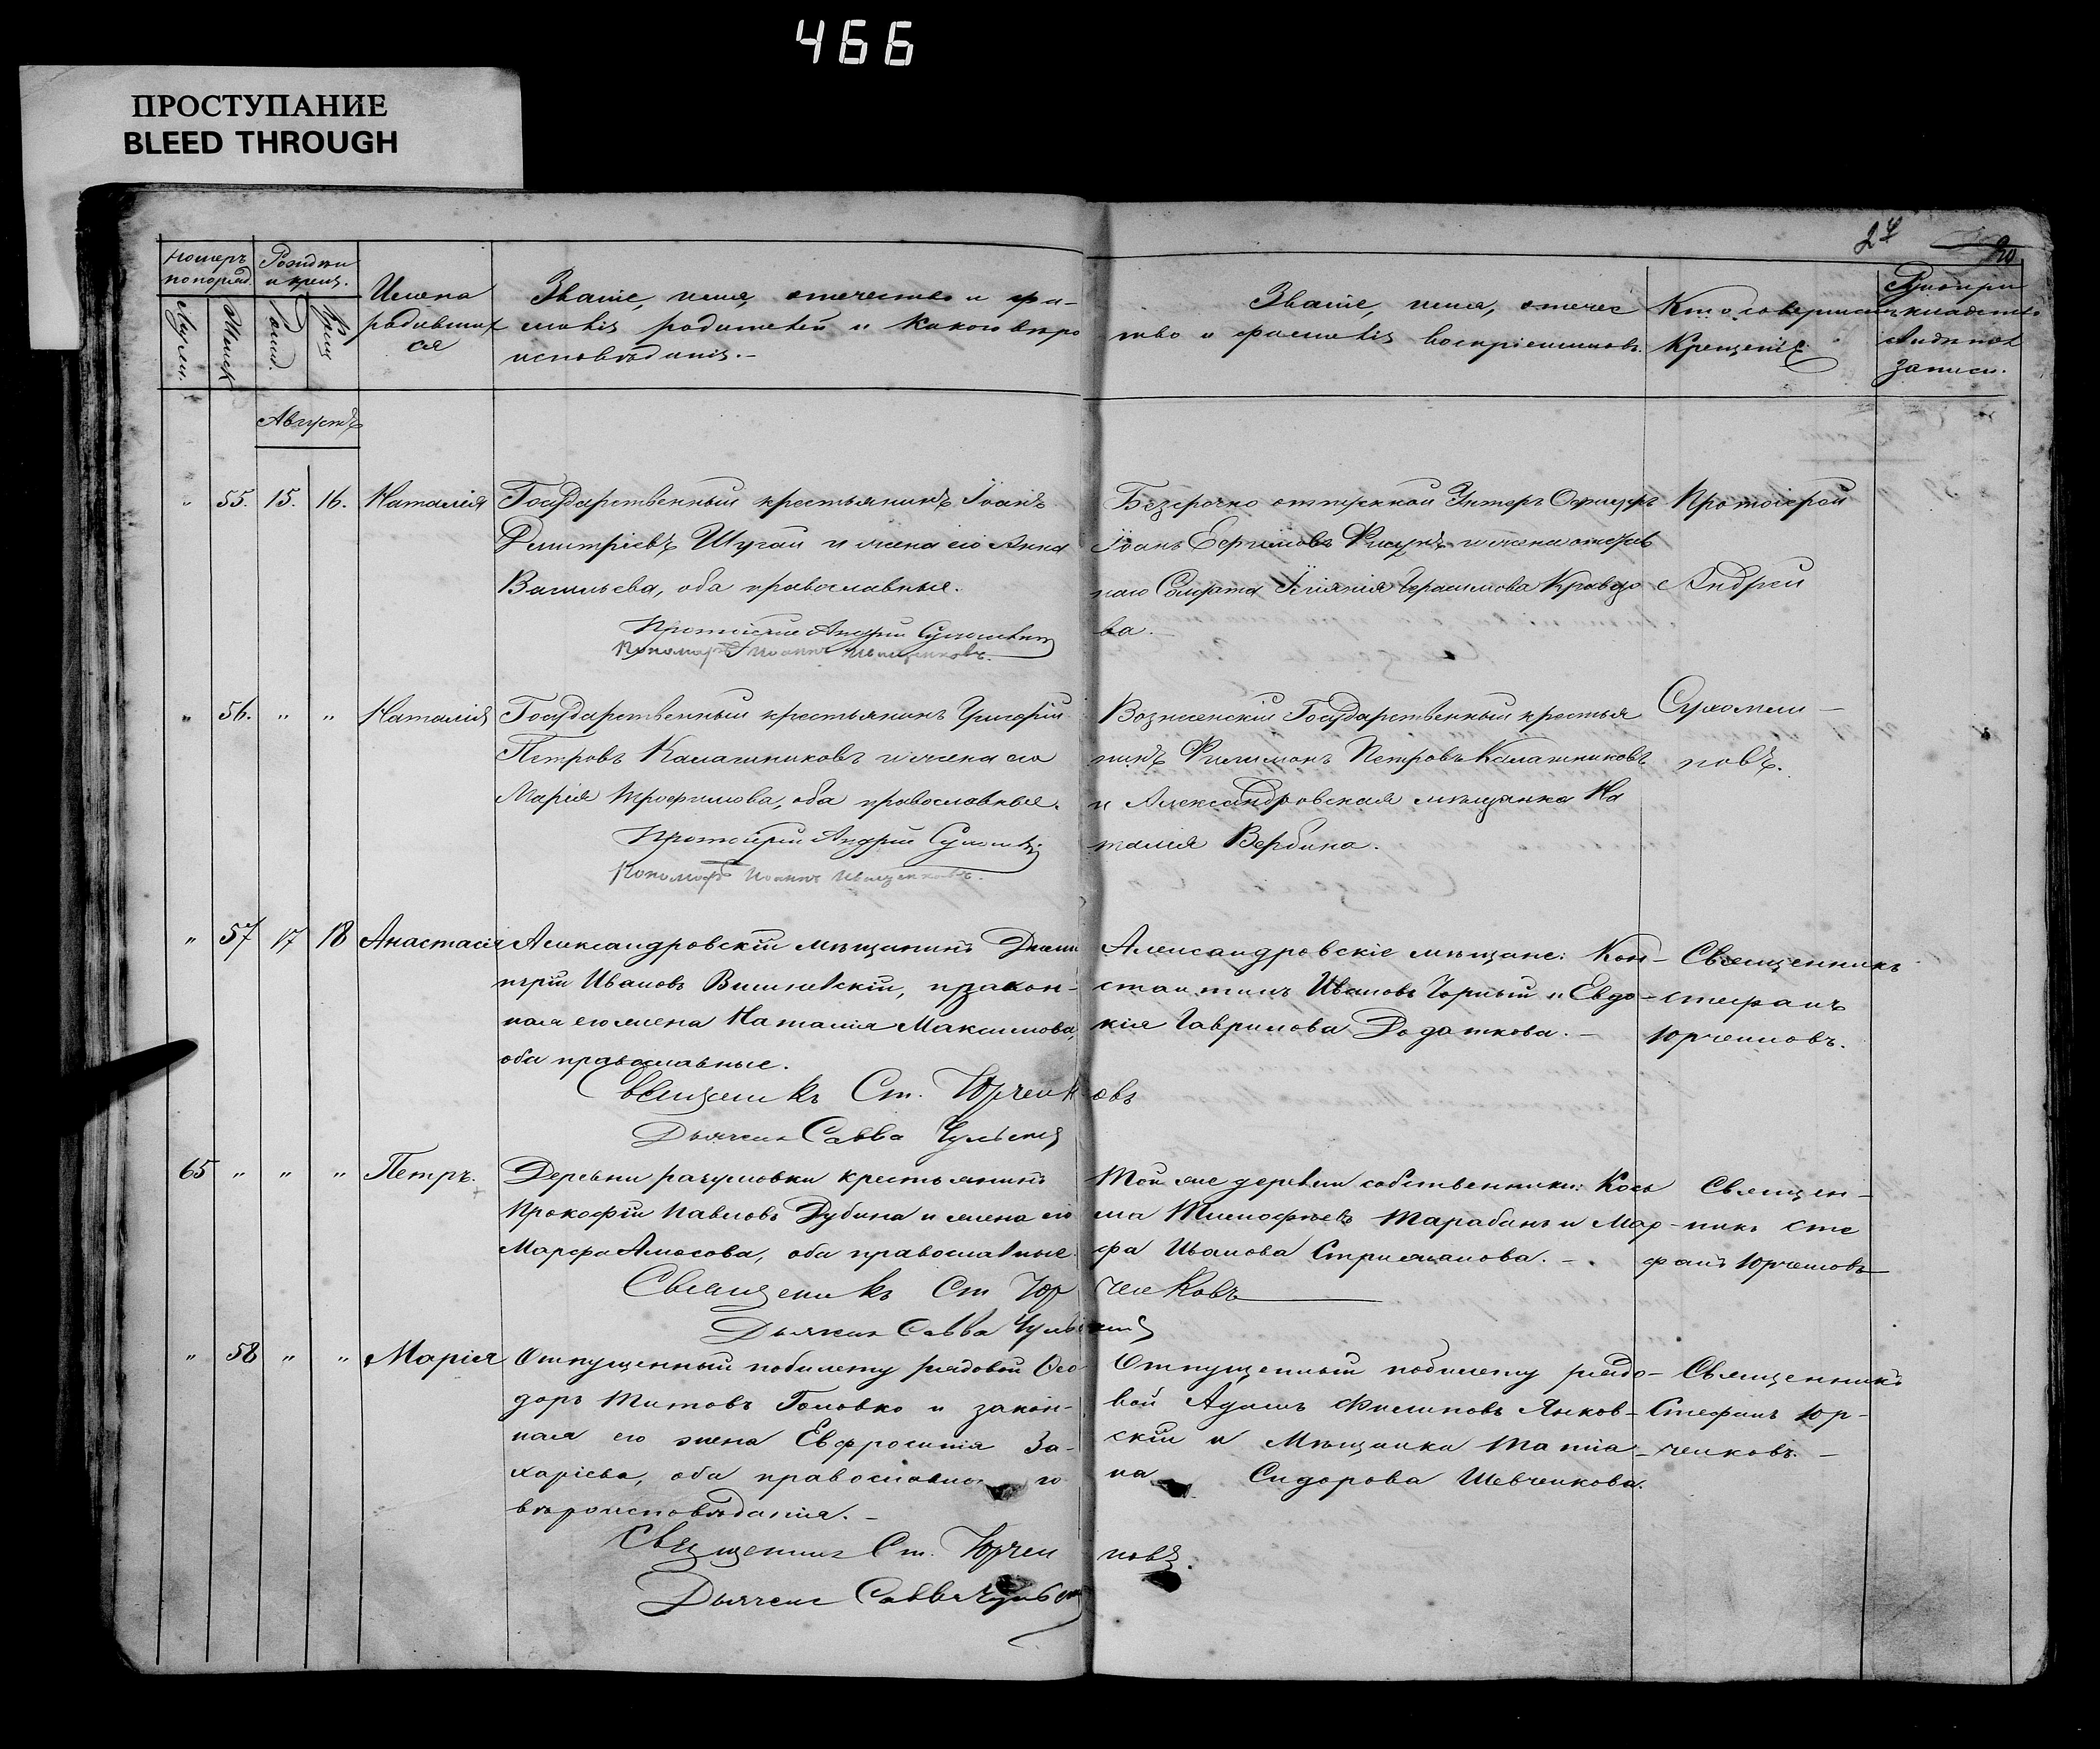 466
ПРОСТУПАНИЕ
BLEED THROUGH
24
Номеръ по поряд.
Мужск.
Женск.
Рожден и крещ.
Рожд.
Крещ.
Имена
родивших
ся
Званіе, имя, отчество и фа-
милія родителей и какого вѣро
исповѣданія.-
Званіе, имя, отчес
тво и фамилія воспріемниковъ.
Кто совершилъ
Крещеніе
записи.
Августъ
" 55. 15. 16. Наталія
Государственный крестьянинъ Іоанъ
Дмитріевъ Шугай и жена его Анна
Васильева, оба православные.
Протоіерей Андрей
Пономарь Иоаннъ
Безсрочно отпускной Унтеръ Офицеръ
Іоанъ Ефимовъ и жена отстав
наго Солдата Герасимова Кравцо
ва.-
Протоіерей
Андрей
" 56. " " Наталія
Государственный крестьянинъ Григорій
Петровъ Калашниковъ и жена его
Марія Трофимова, оба православные.
Протоіерей Андрей
Пономарь Иоаннъ
Вознесенскій Государственный крестья
нинъ Филимонъ Петровъ Калашниковъ
и Александровская мѣщанка На
талія Вербина.
Сухомли-
новъ.
" 57 17 18 Анастасія
Александровскій мѣщанинъ Дими
трій Ивановъ Вишневскій, и закон-
ная его жена Наталія Максимова,
оба православные.
Священникъ Ст. Юрченковъ
Дьячекъ Савва
Александровскіе мѣщане: Кон-
стантинъ Ивановъ Чорный и Евдо-
кія Гаврилова Додаткова.-
Священникъ
Стефанъ
Юрченковъ.
65 " " " Петръ.
Деревни разумовки крестьянинъ
Прокофій Павловъ Дубина и жена его
Марфа Амосова, оба православные.
Священникъ Ст Юрченковъ
Дьячекъ Савва
Той же деревни собственники: Кось
ма Тимофѣевъ Тарабанъ и Мар-
фа Иванова Стрижакова.-
Священ-
никъ Сте
фанъ Юрченковъ
" 58 " " Марія
Отпущенный по билету рядовой Ѳео
доръ Титовъ Головко и закон-
ная его жена Евфросинія За-
харіева, оба православного
вѣроисповѣданія.-
Священникъ Ст. Юрченковъ.
Дьячекъ Савва
Отпущенный по билету рядо-
вой Адамъ Филиповъ Янков-
скій и Мѣщанка Татіа-
на Сидорова Шевченкова.
Священникъ
Стефанъ Юр-
ченковъ.-